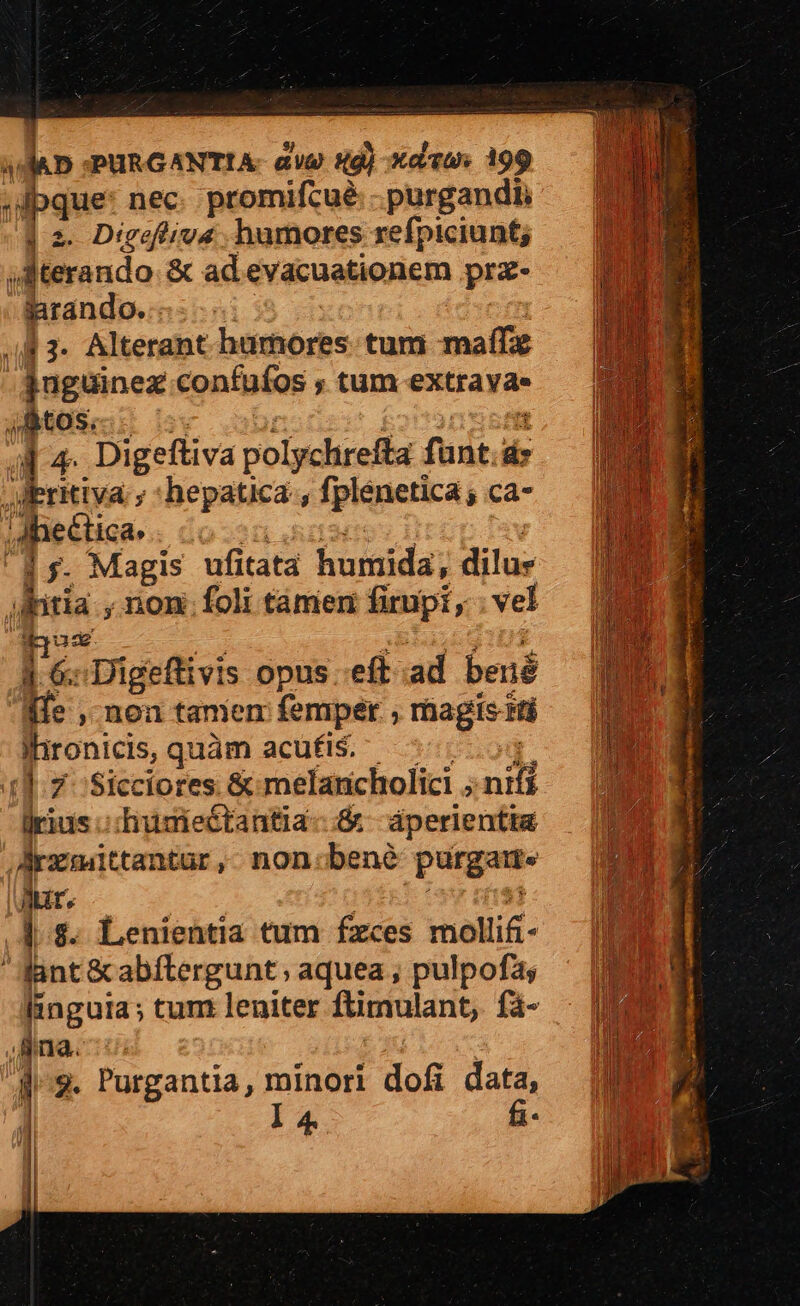 AD PURGANTIA ἄνω καὶ κάτω. 199
que nec promiſcuè purgandi.
2. Digeſtiva humores reſpiciunt,
terando & ad evacuationem præ-
arando.
3. Alterant humores tum maſſæ
nguineæ confuſos, tum extrava-
tos.
4. Digeſtiva polychreſta ſunt, a-
eritiva, hepatica, ſplenetica, ca-
hectica.
5. Magis uſitata humida, dilu-
ntia, non ſoli tamen ſirupi, vel
quæ
6. Digeſtivis opus eſt ad benè
ſſe, non tamen ſemper, magis in
hronicis, quàm acutis.
7 Sicciores & melancholici, niſi
rius humectantia & aperientia
ræmittantur, non benè purgan-
ur.
8. Lenientia tum fæces mollifi-
ant & abſtergunt, aquea, pulpoſa,
inguia; tum leniter ſtimulant, ſa-
ina.
9. Purgantia, minori doſi data,
I 4 fi-